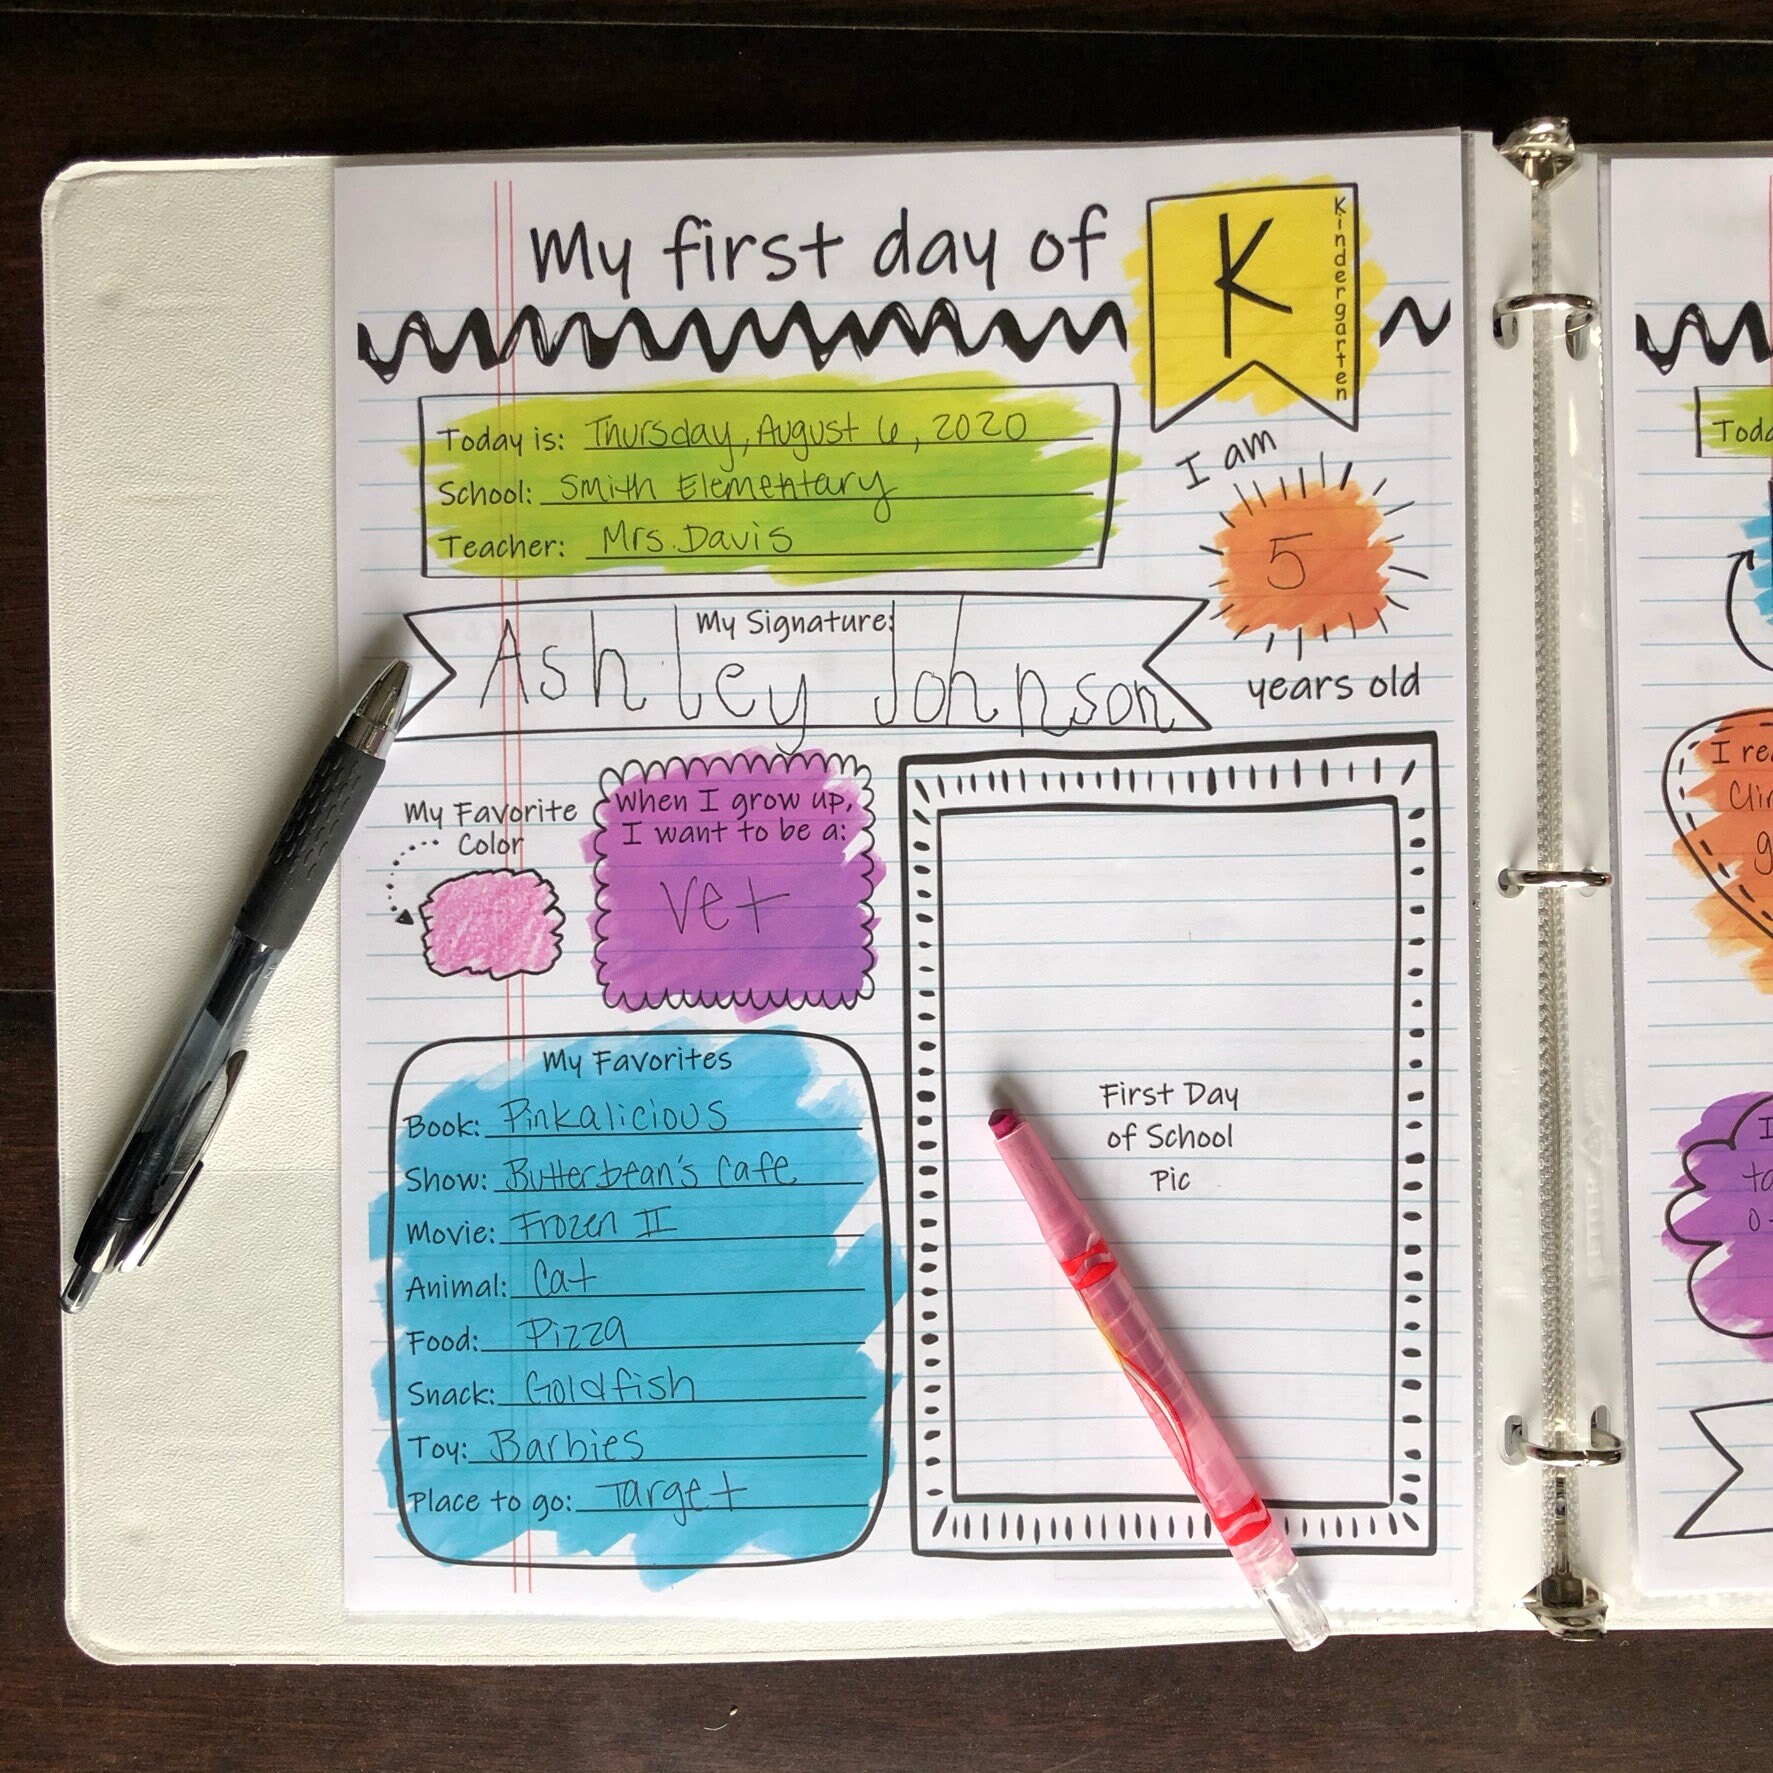 My first day of
K
Kindergarten
Today is: Thursday, August 6, 2020
School: Smith Elementary
Teacher: Mrs. Davis
I am
5
years old
My Signature:
Ashley Johnson
My Favorite
Color
When I grow up,
I want to be a:
vet
My Favorites
Book: Pinkalicious
Show: Butterbean's Cafe
Movie: Frozen II
Animal: Cat
Food: Pizza
Snack: Goldfish
Toy: Barbies
Place to go: Target
First Day
of School
Pic
I